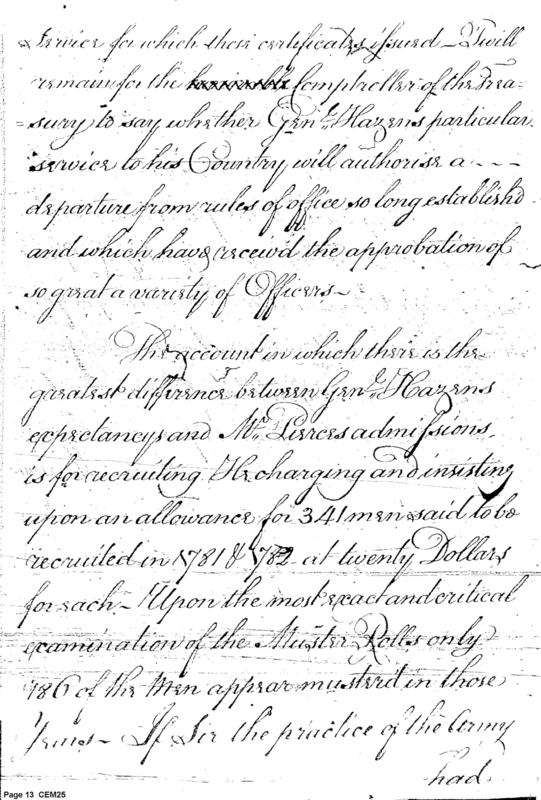 service for which those certificates issued – I will
remain for the Comptroller of the Trea-
=sury to say whether Genl. Hazens particular
service to his Country will authorise a - - -
departure from rules of office so long establishd
and which have receiv'd the approbation of
so great a variety of Officers –
The account in which there is the
greatest difference between Genl. Hazens
expectancys and Mr. Pierces admissions,
is for recruiting He charging and insisting
upon an allowance for 341 men said to be
recruited in 1781 & 782 at twenty Dollars
for each – Upon the most exact and critical
examination of the Muster Rolls only
186 of the Men appear musterd in those
Years – If Sir the practice of the Army
had
Page 13 CEM25